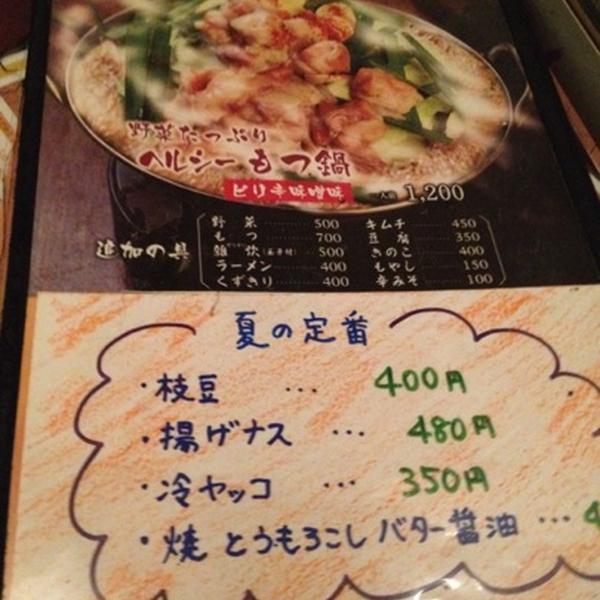 野菜たっぷり
ヘルシーもつ鍋
ピリ辛味噌味 一人前 1,200
追加の具
野菜 500 キムチ 450
もつ 700 豆腐 350
雑炊(玉子付) 500 きのこ 400
ラーメン 400 もやし 150
くずきり 400 辛みそ 100
夏の定番
・枝豆 … 400円
・揚げナス … 480円
・冷ヤッコ … 350円
・焼とうもろこしバター醤油 … 4